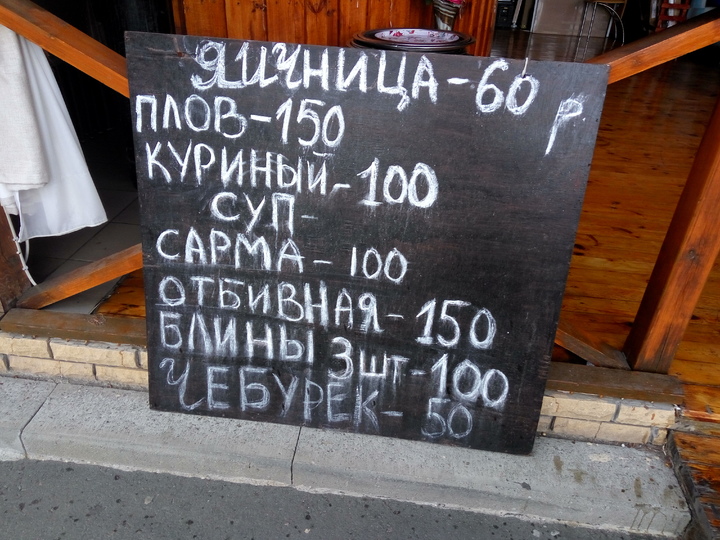 ЯИЧНИЦА-60 р
ПЛОВ-150
КУРИНЫЙ-100
СУП-
САРМА-100
ОТБИВНАЯ-150
БЛИНЫ 3шт-100
ЧЕБУРЕК-50